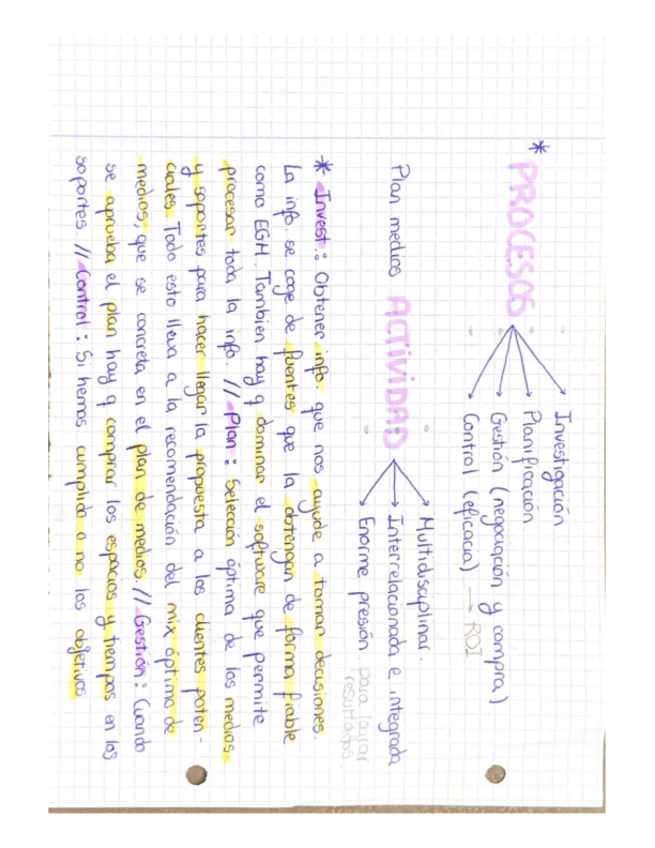 * PROCESOS
Investigación
Planificación
Gestión (negociación y compra)
Control (eficacia) → ROI
Plan medios ACTIVIDAD
Multidisciplinar.
Interrelacionada e integrada
Enorme presión para lograr
resultados.
* Invest: Obtener info. que nos ayude a tomar decisiones.
La info. se coge de fuentes que la obtengan de forma fiable
como EGM. Tambien hay q dominar el software que permite
procesar toda la info. // Plan: Selección óptima de los medios
y soportes para hacer llegar la propuesta a los clientes poten-
ciales. Todo esto lleva a la recomendación del mix óptimo de
medios, que se concreta en el plan de medios. // Gestión: Cuando
se aprueba el plan hay q comprar los espacios y tiempos en los
soportes // Control: Si hemos cumplido o no los objetivos